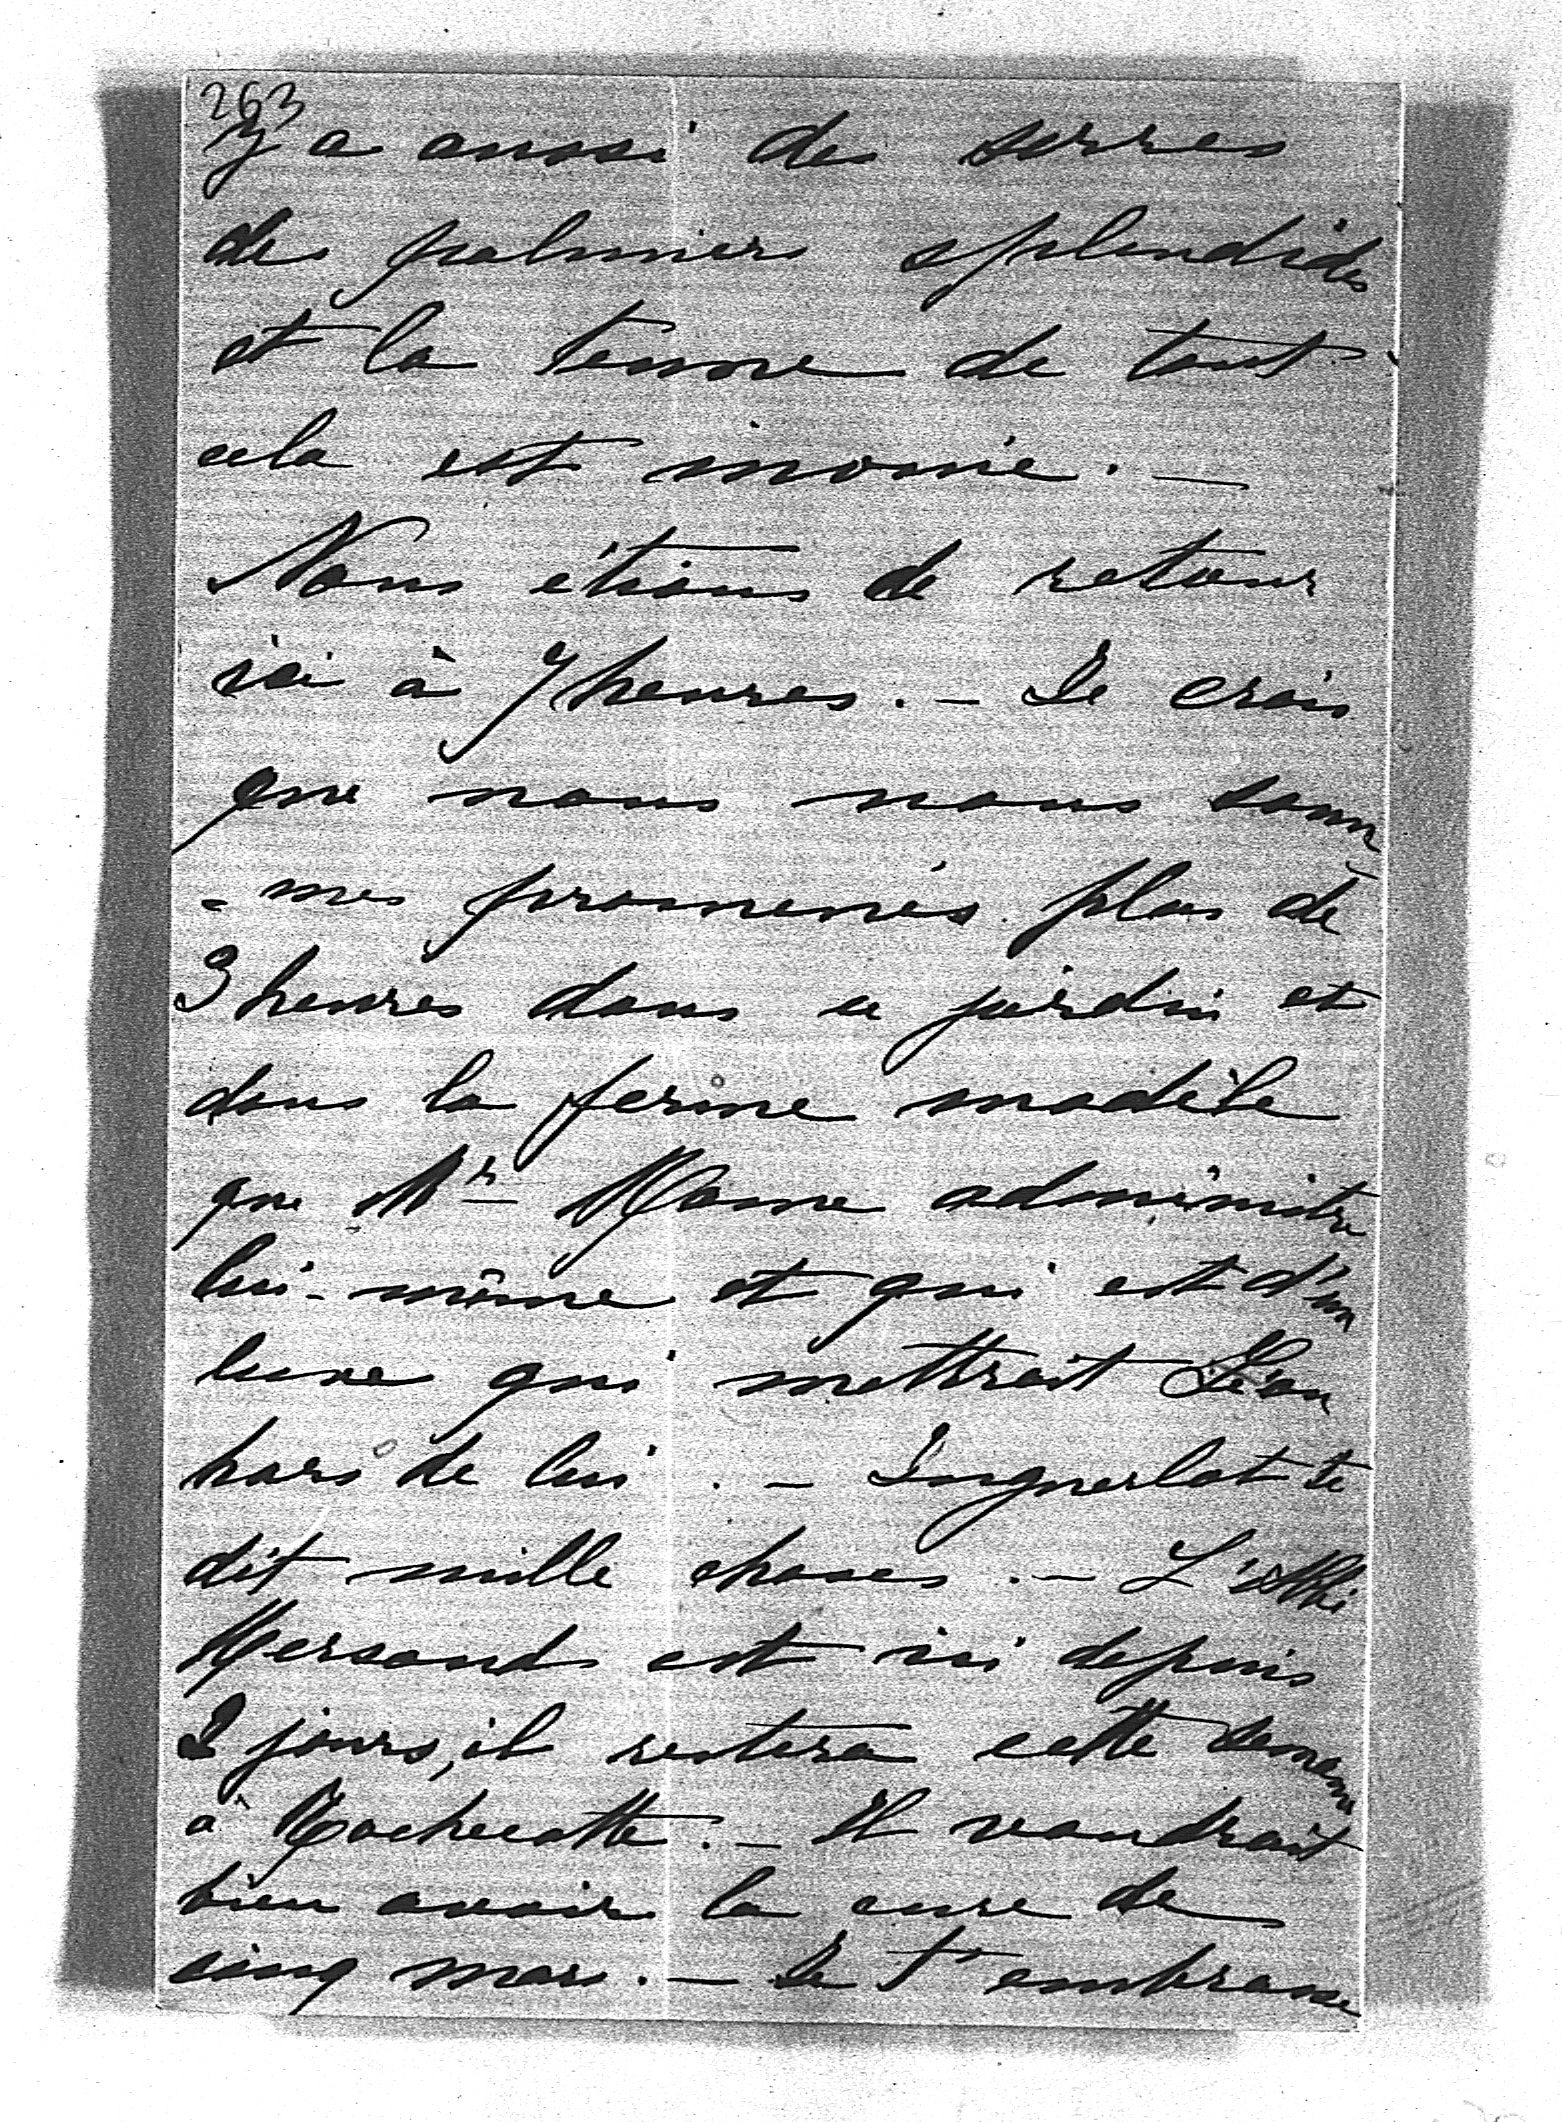 263
y a aussi des serres
des palmiers splendides
et la tenue de tout
cela est inouïe. —
Nous étions de retour
ici à 7 heures. — Je crois
que nous nous som
- mes promenés plus de
3 heures dans ce jardin et
dans la ferme modèle
que Mr Mame administre
lui-même et qui est d'un
luxe qui mettrait Léon
hors de lui. — Inguerlot te
dit mille choses. — L'abbé
Mersand est ici depuis
2 jours, il restera cette semaine
à Rochecotte. — Il voudrait
bien avoir la cure de
cinq mars. — Je t'embrasse